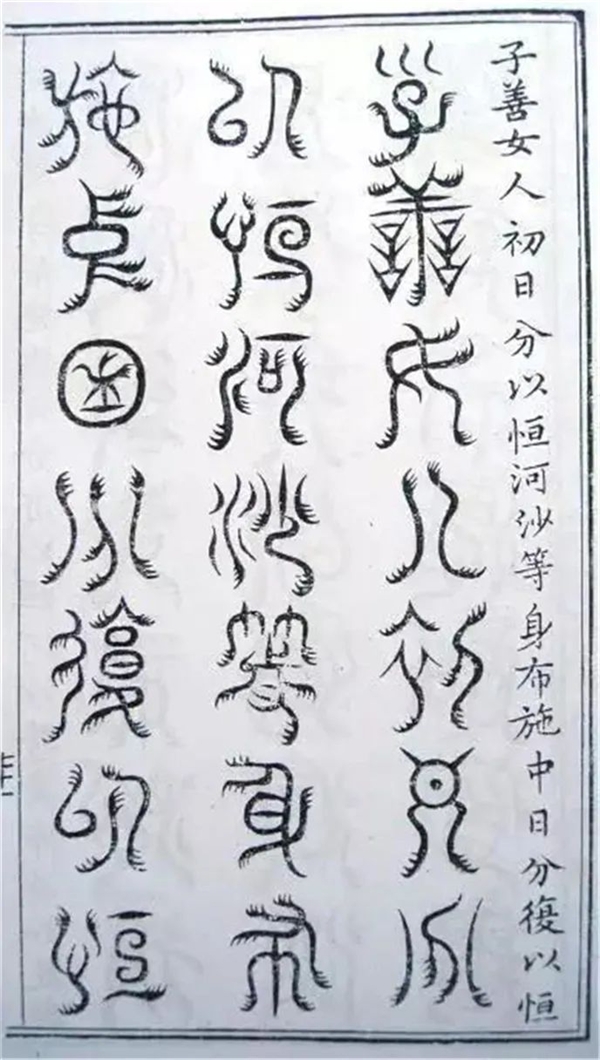 子善女人初日分以恒河沙等身布施中日分復以恒
子善女人初日分
以恒河沙等身布
施中日分復以恒